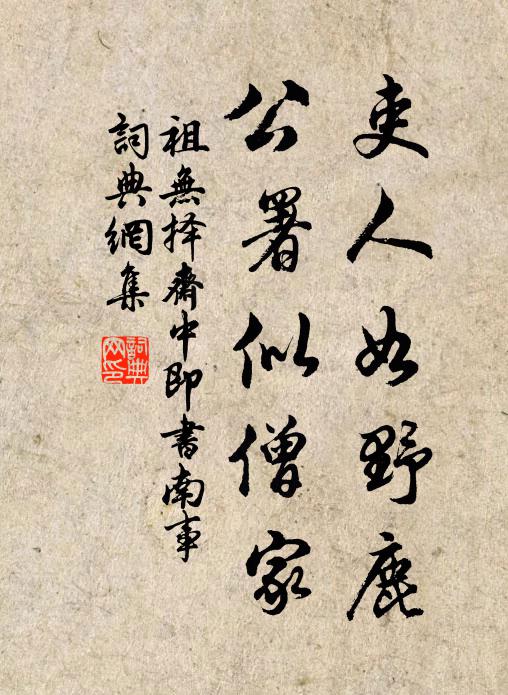 吏人如野鹿
公署似僧家
祖無择齋中即書南事
詞典網集
詞典
网印